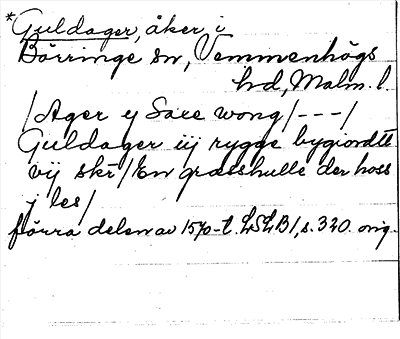 *Guldager, åker i
Börringe sn, Vemmenhögs
hd, Malm. l.
/Ager y Saxe wong/---/
Guldager iij rygge bygiordtt
vij skr/En græsshulle der hoss
j les/
förra delen av 1570-t. LSLB1, s. 320. orig.